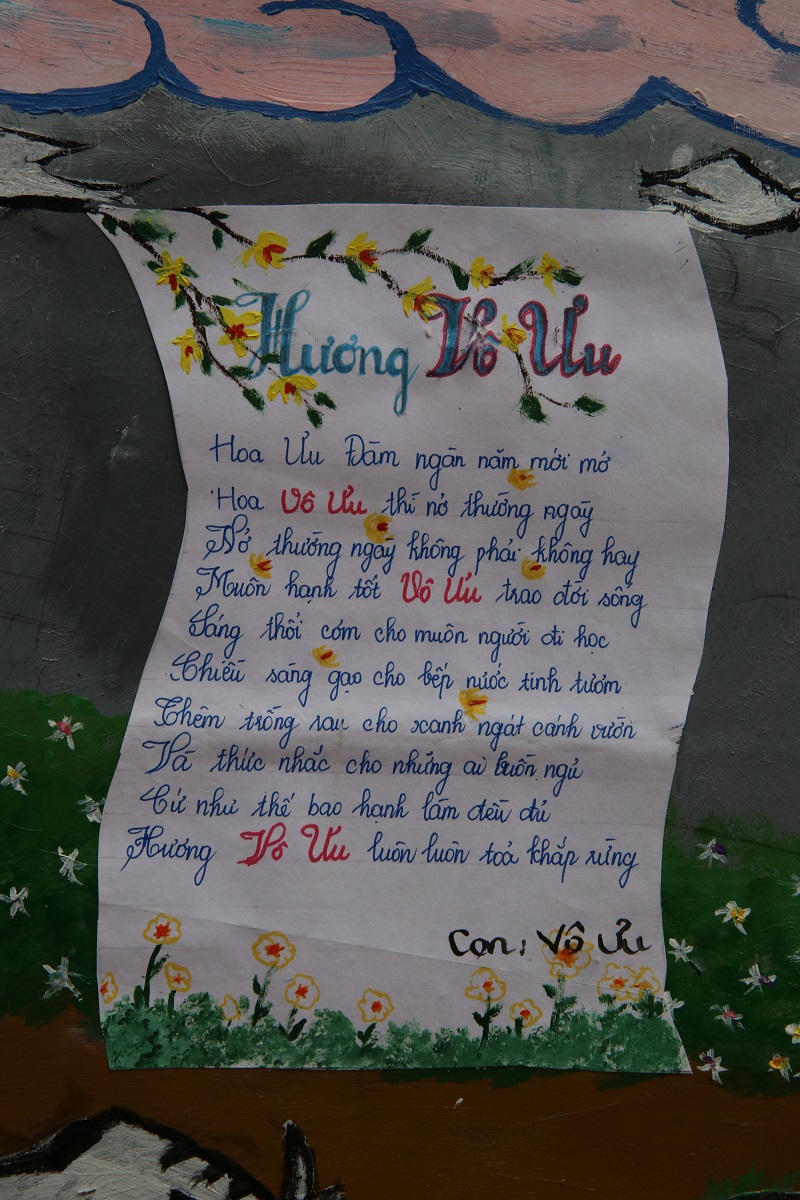 Hương Vô Ưu
Hoa Ưu Đàm ngàn năm mới mở
Hoa Vô Ưu thì nở thường ngày
Nở thường ngày không phải không hay
Muôn hạnh tốt Vô Ưu trao đời sống
Sáng thổi cơm cho muôn người đi học
Chiều sàng gạo cho bếp nước tinh tươm
Thêm trồng rau cho xanh ngát cánh vườn
Và thức nhắc cho những ai buồn ngủ
Cứ như thế bao hạnh làm đều đủ
Hương Vô Ưu luôn luôn toả khắp rừng
Con: Vô Ưu